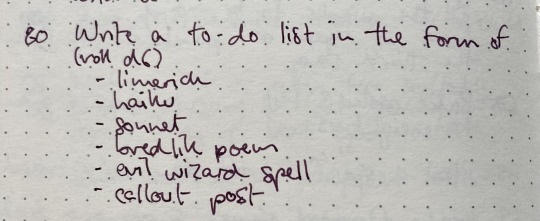 80 Write a to-do list in the form of
(roll d6)
- limerick
- haiku
- sonnet
- bredlik poem
- evil wizard spell
- callout post